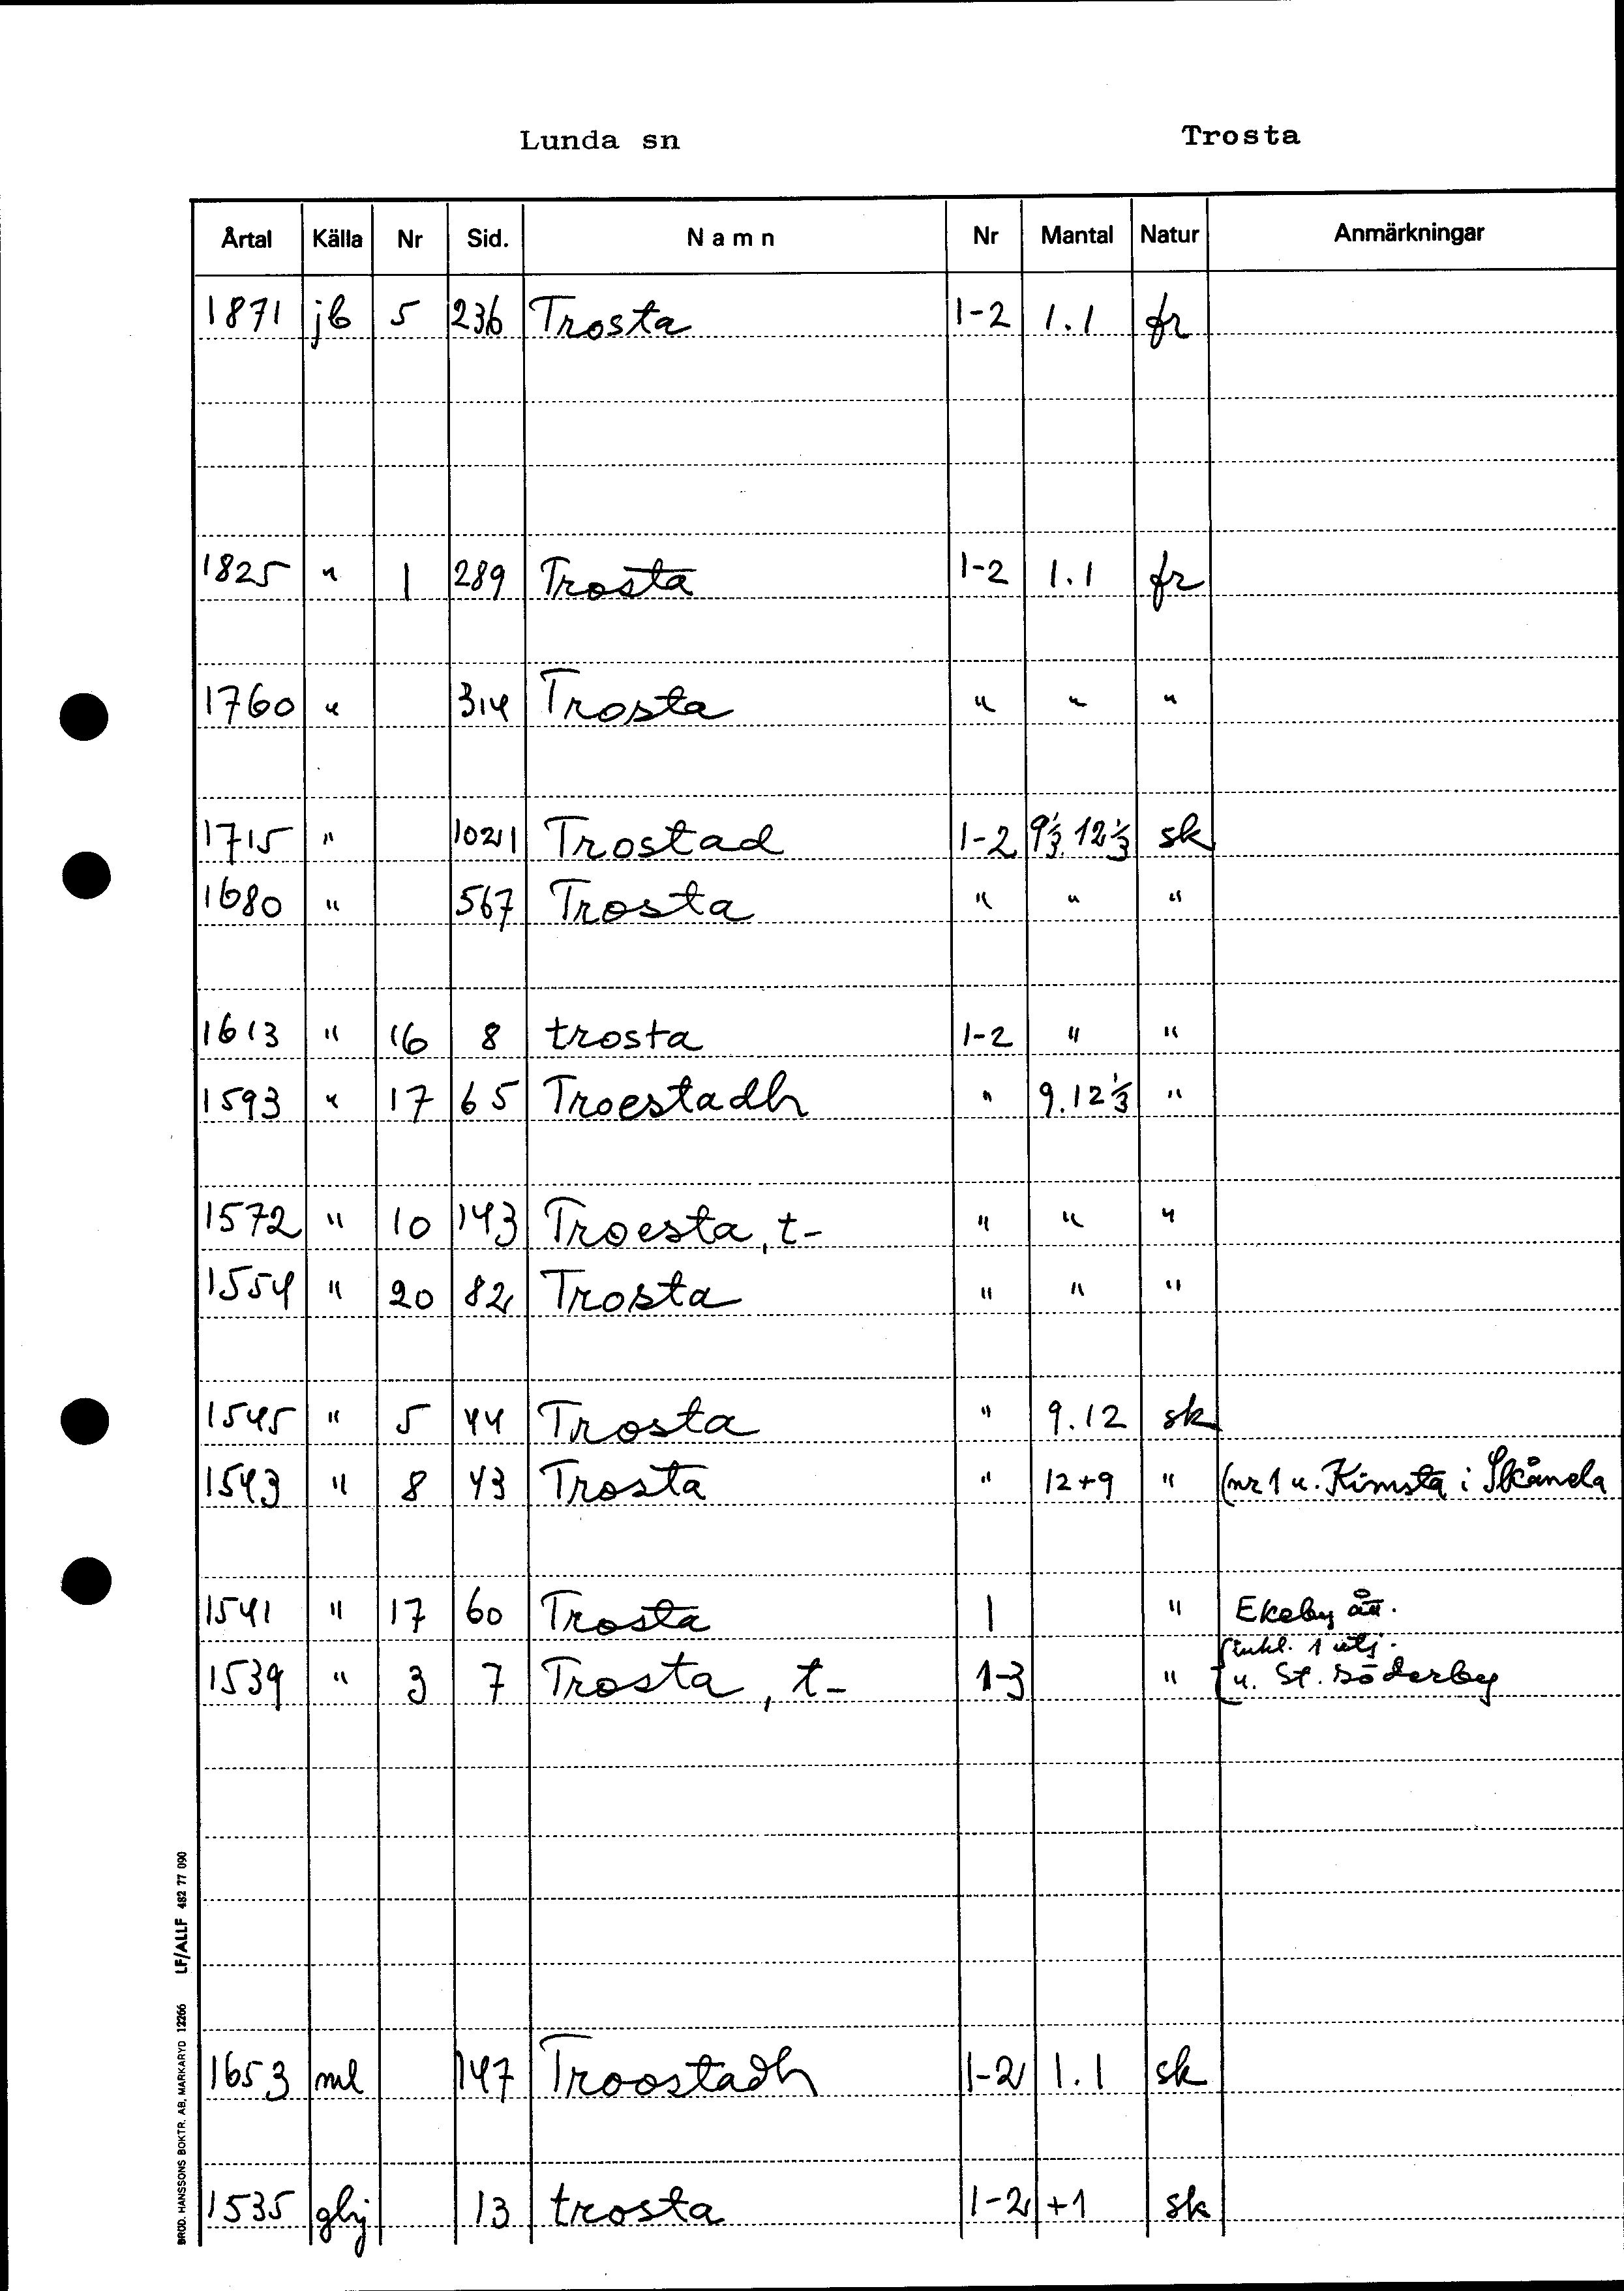 Lunda sn Trosta
Årtal Källa Nr Sid. Namn Nr Mantal Natur Anmärkningar
1871 jb 5 236 Trosta 1-2 1.1 fr
1825 " 1 289 Trosta 1-2 1.1 fr
1760 " 314 Trosta " " "
1715 " 1021 Trostad 1-2 9⅓.12⅓ sk
1680 " 567 Trosta " " "
1613 " 16 8 trosta 1-2 " "
1593 " 17 65 Troestadh " 9.12⅓ "
1572 " 10 143 Troesta, t- " " "
1554 " 20 82 Trosta " " "
1545 " 5 44 Trosta " 9.12 sk
1543 " 8 43 Trosta " 12+9 " (nr 1 u. Kimsta i Skånela
1541 " 17 60 Trosta 1 " Ekeby ått.
inkl. 1 utj.
1539 " 3 7 Trosta, t- 1-3 " u. St. Söderby
1653 ml 147 Troostadh 1-2 1.1 sk
1535 ghj 13 trosta 1-2 +1 sk
BRÖD. HANSSONS BOKTR. AB, MARKARYD 12266 LF/ALLF 482 77 090